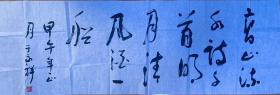 高山流
水诗千
首明
月清
风酒一
船
甲午年正
月